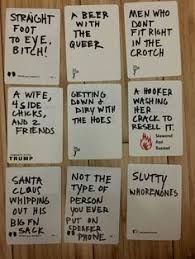 STRAIGHT
FOOT
TO EYE,
BITCH!
A BEER
WITH
THE
QUEER
MEN WHO
DON'T
FIT RIGHT
IN THE
CROTCH
A WIFE,
4 SIDE
CHICKS,
AND 2
FRIENDS
TRUMP
GETTING
DOWN &
DIRTY WITH
THE HOES
A HOOKER
WASHING
HER
CRACK TO
RESELL IT.
SANTA
CLAUS
WHIPPING
OUT HIS
BIG FN
SACK
NOT THE
TYPE OF
PERSON
YOU EVER
PUT ON
SPEAKER
PHONE
SLUTTY
WHOREMONES